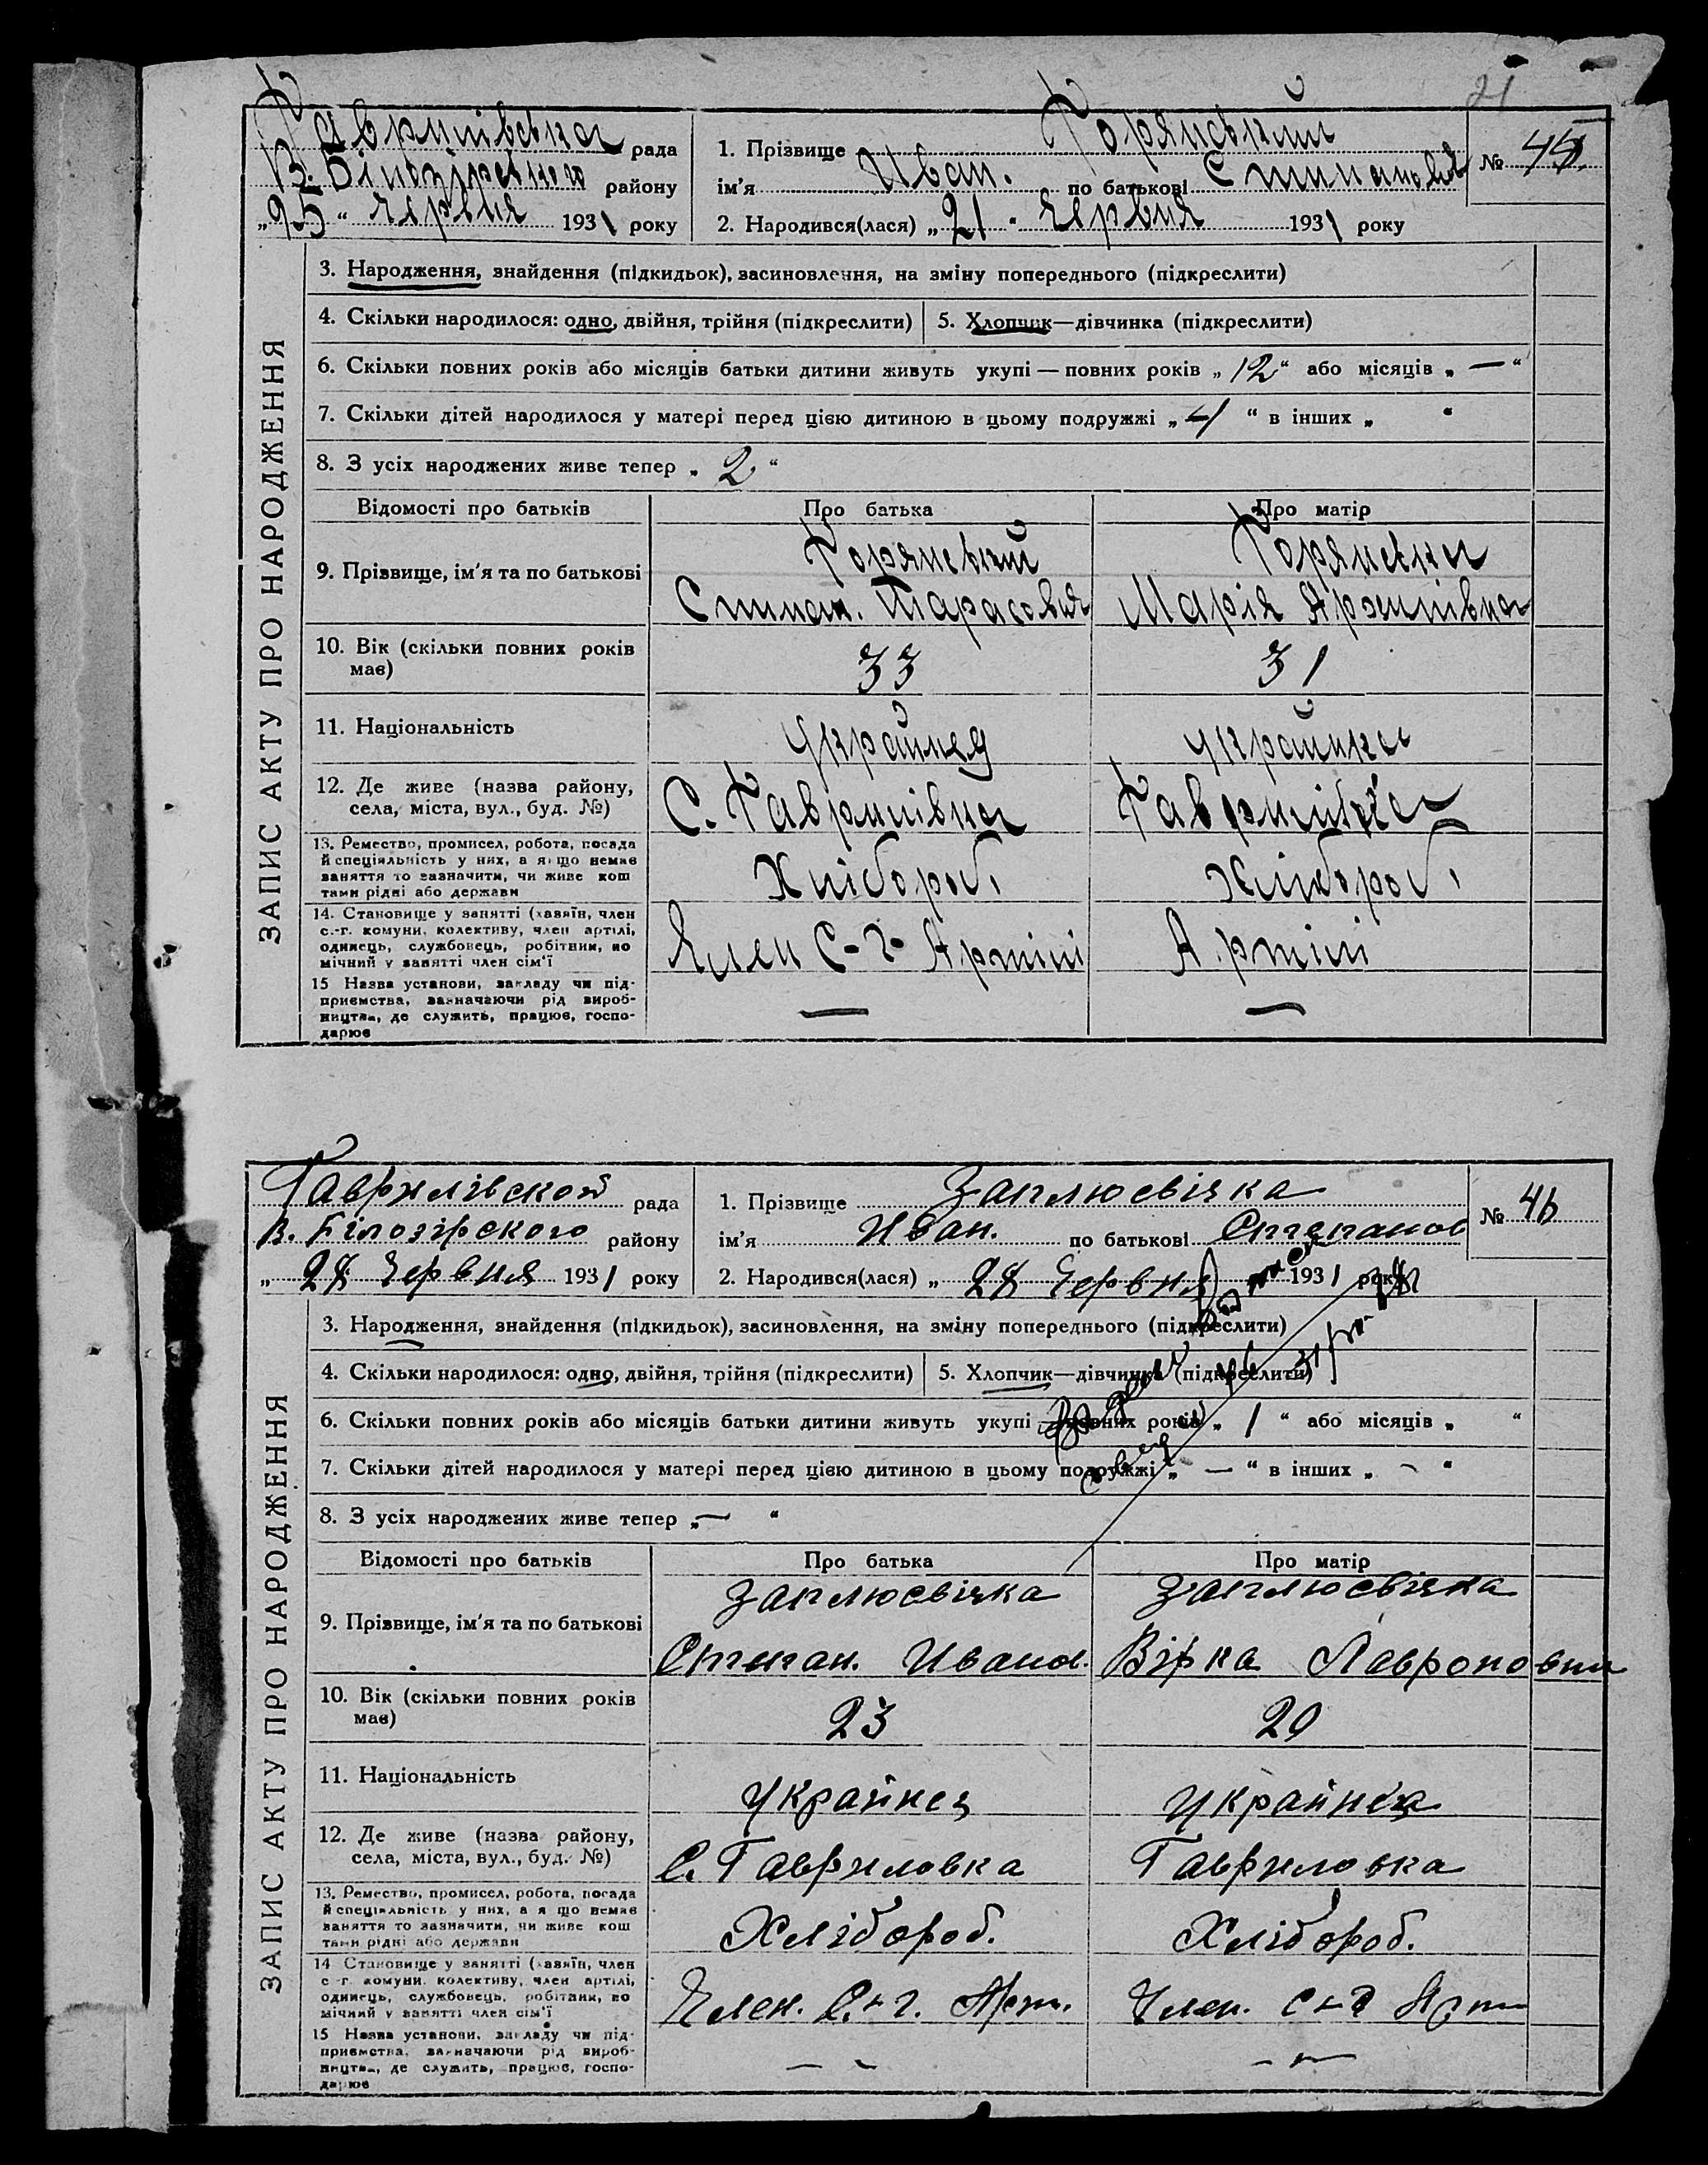 21
Гаврилівська рада
В. Білозірського району
„25“ Червня 1931 року
1. Прізвище Горянський
ім'я Иван. по батькові Степанов
№ 45
2. Народився(лася) „21“ Червня 1931 року
ЗАПИС АКТУ ПРО НАРОДЖЕННЯ
3. Народження, знайдення (підкидьок), засиновлення, на зміну попереднього (підкреслити)
4. Скільки народилося: одно, двійня, трійня (підкреслити) 5. Хлопчик—дівчинка (підкреслити)
6. Скільки повних років або місяців батьки дитини живуть укупі — повних років „12“ або місяців „—“
7. Скільки дітей народилося у матері перед цією дитиною в цьому подружжі „4“ в інших „ “
8. З усіх народжених живе тепер „2“
Відомості про батьків Про батька Про матір
9. Прізвище, ім'я та по батькові
Горянський
Степан. Тарасович
Горянська
Марія Архипівна
10. Вік (скільки повних років має) 33 31
11. Національність Українец Українка
12. Де живе (назва району, села, міста, вул., буд. №)
С. Гаврилівка Гаврилівка
13. Ремество, промисел, робота, посада
й спеціяльність у них, а якщо немає
заняття то зазначити, чи живе кош
тами рідні або держави
Хлібороб. Хлібороб.
14. Становище у занятті (хазяїн, член
с.-г. комуни, колективу, член артілі,
одинець, службовець, робітник, по
мічний у занятті член сім'ї
Член С-г. Артілі Артілі
15 Назва установи, закладу чи під-
приємства, зазначаючи рід вироб-
ництва, де служить, працює, госпо-
дарює
— —
Гаврилівской рада
В. Білозірского району
„28 Червня 1931 року
1. Прізвище Заплюсвічка
ім'я Иван. по батькові Степанов
№ 46
2. Народився(лася) „28 Червня 1931 року
ЗАПИС АКТУ ПРО НАРОДЖЕННЯ
3. Народження, знайдення (підкидьок), засиновлення, на зміну попереднього (підкреслити)
4. Скільки народилося: одно, двійня, трійня (підкреслити) 5. Хлопчик—дівчинка (підкреслити)
6. Скільки повних років або місяців батьки дитини живуть укупі — повних років „1“ або місяців „ “
7. Скільки дітей народилося у матері перед цією дитиною в цьому подружжі „—“ в інших „—“
8. З усіх народжених живе тепер „—“
Відомості про батьків Про батька Про матір
9. Прізвище, ім'я та по батькові
Заплюсвічка
Степан. Иванов.
Заплюсвічка
Вірка Лавроновна
10. Вік (скільки повних років має) 23 20
11. Національність Українец Українка
12. Де живе (назва району, села, міста, вул., буд. №)
С. Гавриловка Гавриловка
13. Ремество, промисел, робота, посада
й спеціяльність у них, а якщо немає
заняття то зазначити, чи живе кош
тами рідні або держави
Хлібороб. Хлібороб.
14 Становище у занятті (хазяїн, член
с-г. комуни, колективу, член артілі,
одинець, службовець, робітник, по
мічний у занятті член сім'ї
Член. С-г. Арт. Член. С-г Арт
15 Назва установи, закладу чи під-
приємства, зазначаючи рід вироб-
ництва, де служить, працює, госпо-
дарює
— — — —